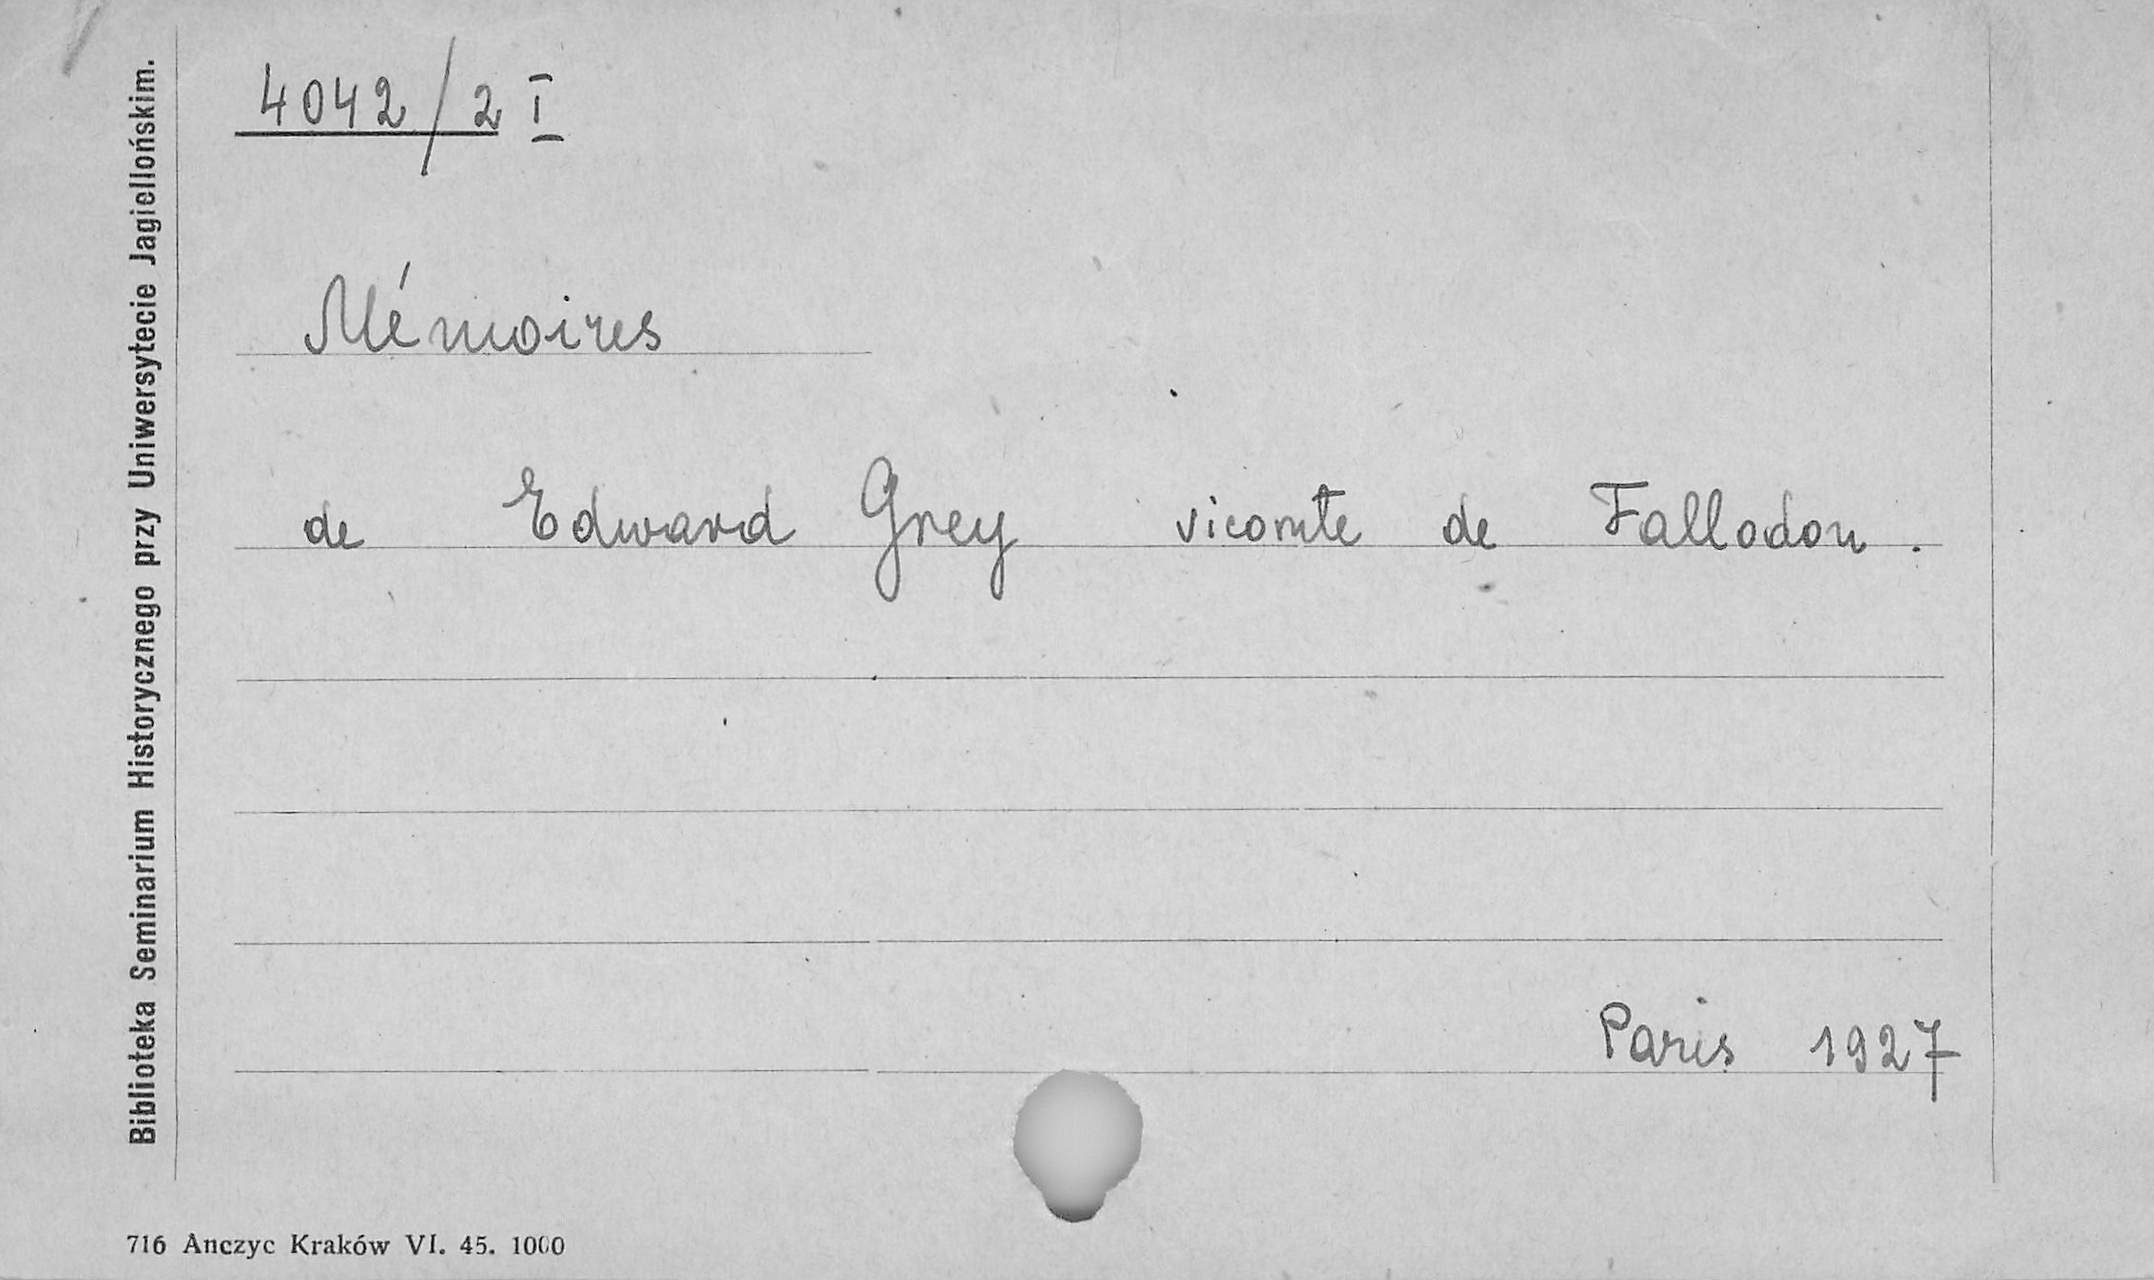 4042/2 I
Mémoires
de Edward Grey vicomte de Fallodon.
Paris 1927
Biblioteka Seminarium Historycznego przy Uniwersytecie Jagiellońskim.
716 Anczyc Kraków VI. 45. 1000